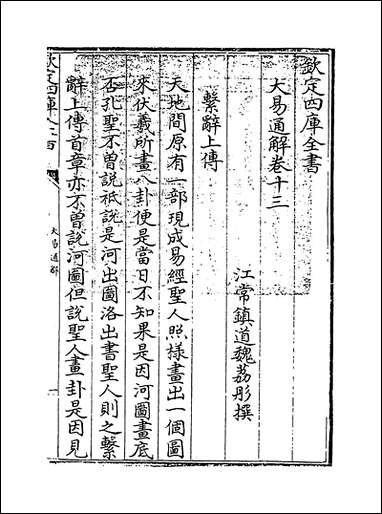 欽定四庫全書
大易通解卷十三
江常鎮道魏荔彤撰
繫辭上傳
天地間原有一部現成易經聖人照樣畫出一個圖
來伏羲所畫八卦便是當日不知果是因河圖畫底
否孔聖不曽説祗説是河出圖洛出書聖人則之繫
辭上傳首章亦不曽説河圖但説聖人畫卦是因見
欽定四庫全書
大易通解
一